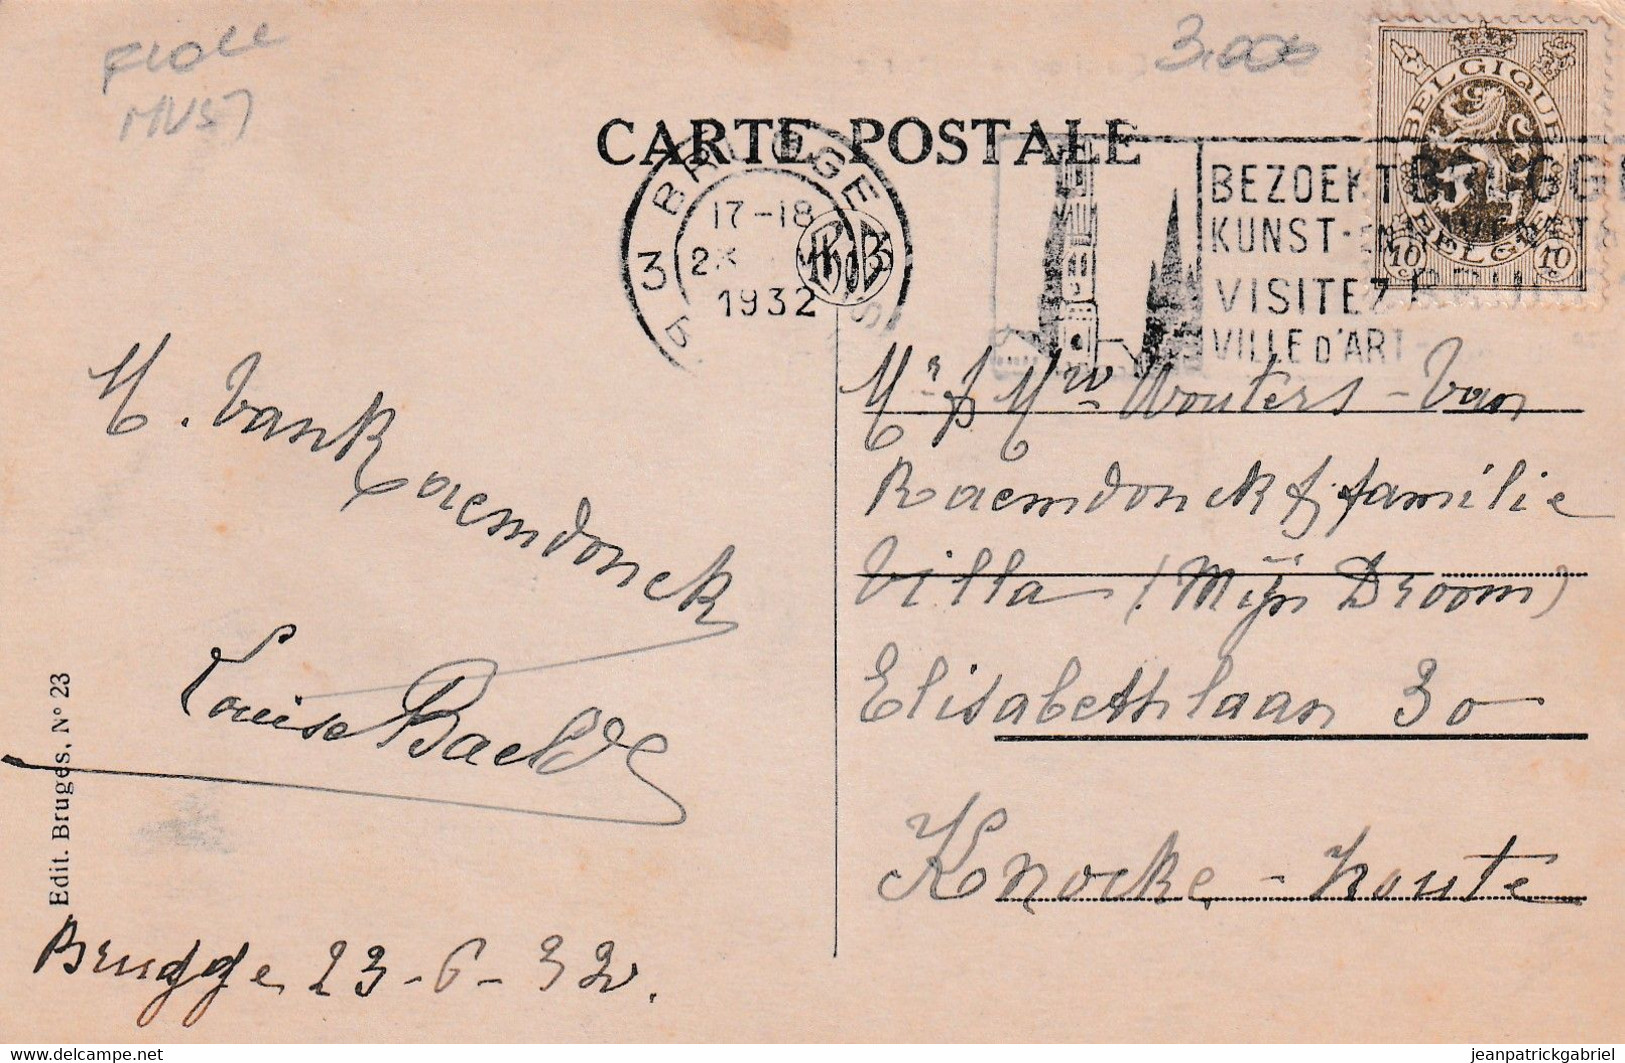 3.000
CARTE POSTALE
BELGIQUE
BELGIE
10 c
10 c
3 BRUGGE 3
17-18
1932
BEZOEKT BRUGGE
KUNST-
VISITEZ BRUGES
VILLE D'ART -
M. Van Raemdonck
Louise Baelde
Brugge 23-6-32.
Edit. Bruges. N° 23
Mr & Mw Wouters - Van
Raemdonck & familie
Villa (Mijn Droom)
Elisabethlaan 30
Knocke - Zoute
jeanpatrickgabriel
www.delcampe.net